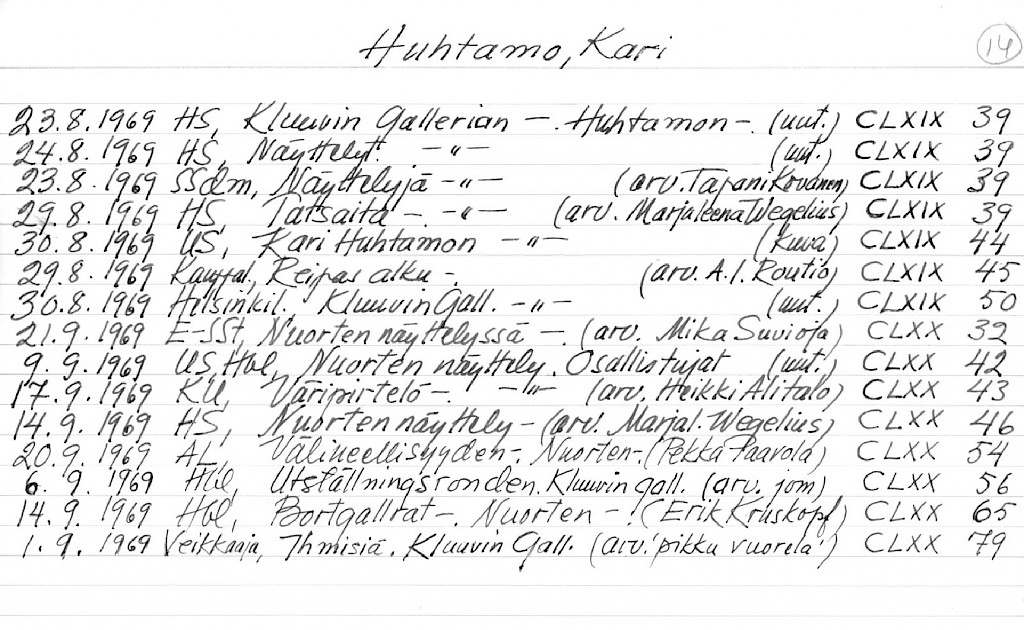 Huhtamo, Kari 14
23.8.1969 HS, Kluuvin Gallerian -. Huhtamon -. (uut.) CLXIX 39
24.8.1969 HS, Näyttelyt. -"- (uut.) CLXIX 39
23.8.1969 SSdm, Näyttelyjä -"- (arv. Tapani Kovanen) CLXIX 39
29.8.1969 HS, TaTsaita -. -"- (arv. Marjaleena Wegelius) CLXIX 39
30.8.1969 US, Kari Huhtamon -"- (kuva) CLXIX 44
29.8.1969 Kauppal, Reipas alku -. (arv. A.I. Routio) CLXIX 45
30.8.1969 Helsinkil. Kluuvin Gall. -"- (uut.) CLXIX 50
21.9.1969 E-SSt, Nuorten näyttelyssä -. (arv. Mika Suvioja) CLXX 32
9.9.1969 US, Hbl, Nuorten näyttely. Osallistujat (uut.) CLXX 42
17.9.1969 KU, Väripirtelö -. -"- (arv. Heikki Alitalo) CLXX 43
14.9.1969 HS, Nuorten näyttely - (arv. Marjal. Wegelius) CLXX 46
20.9.1969 AL, Välineellisyyden -. Nuorten -. (Pekka Paavola) CLXX 54
6.9.1969 Hbl, Utställningsronden. Kluuvin gall. (arv. jom) CLXX 56
14.9.1969 Hbl, Bortgallrat -. Nuorten -! (Erik Kruskopf) CLXX 65
1.9.1969 Veikkaaja, Ihmisiä. Kluuvin Gall. (arv. 'pikku vuorela') CLXX 79